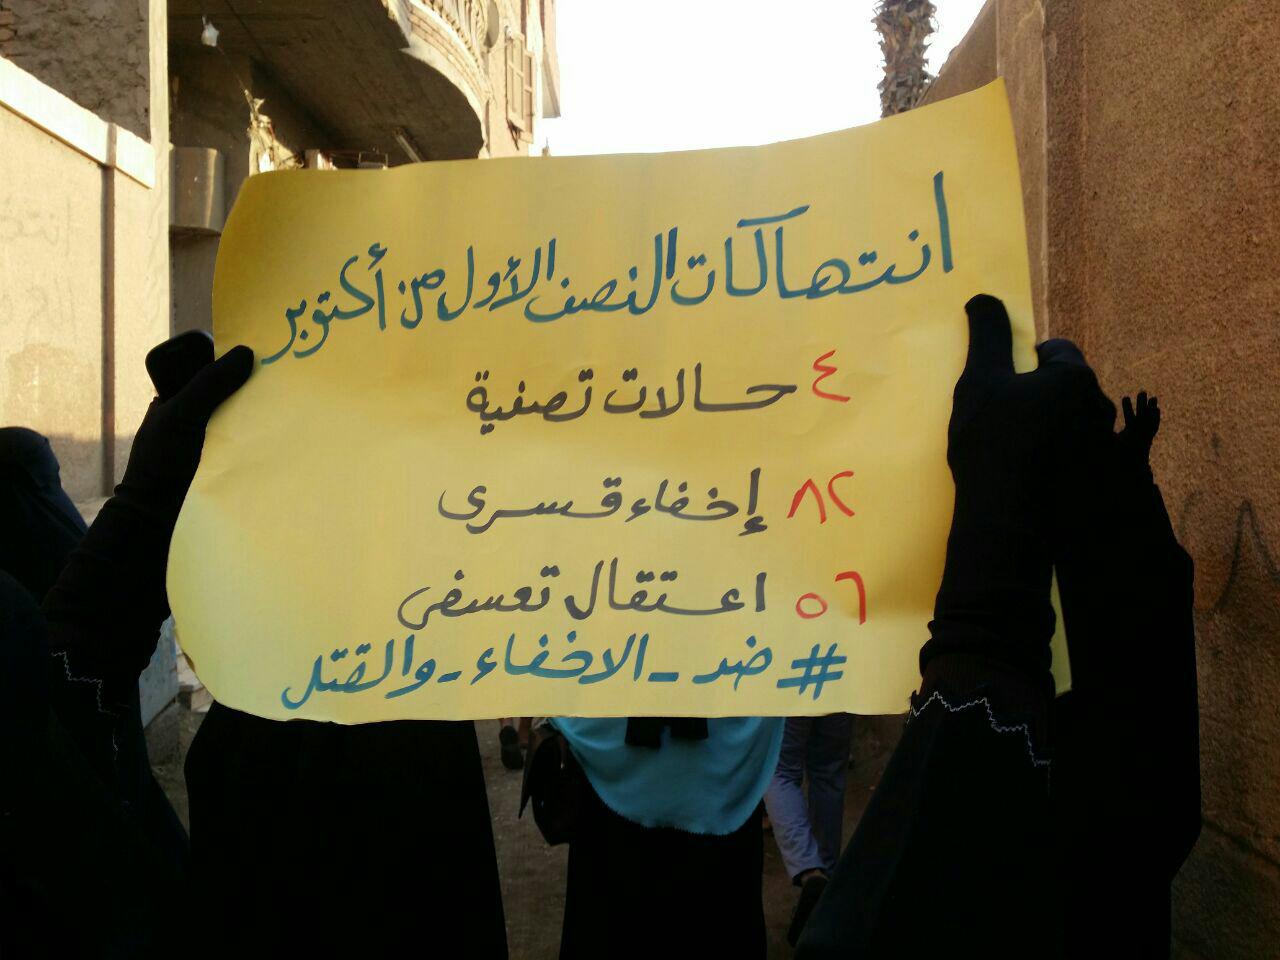 انتهاكات النصف الأول من أكتوبر
٤ حالات تصفية
٨٢ إخفاء قسرى
٥٦ اعتقال تعسفى
#ضد_الاخفاء_والقتل